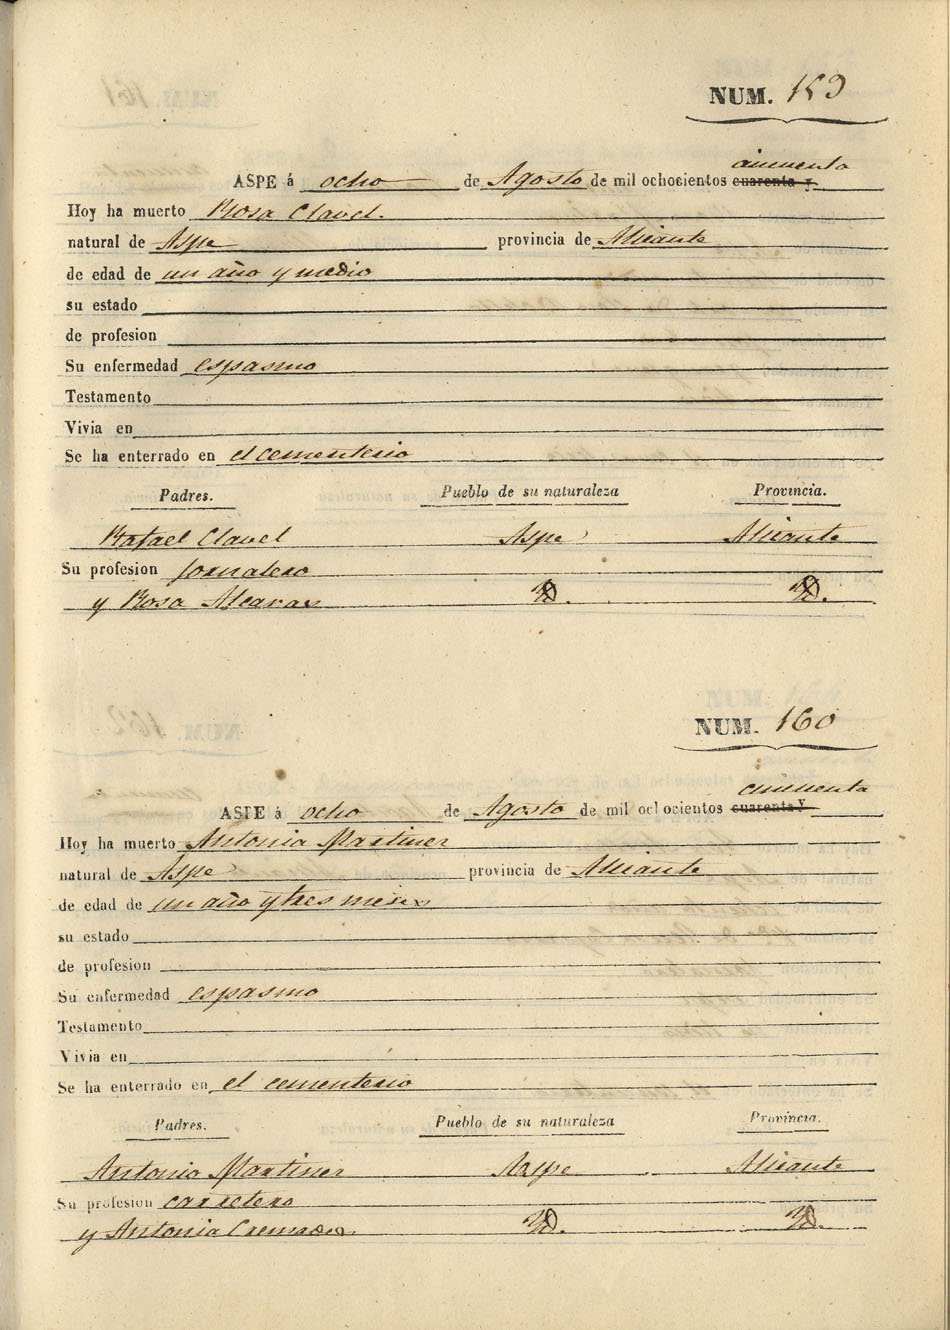 NUM. 159
cincuenta
ASPE á ocho de Agosto de mil ochocientos cuarenta y
Hoy ha muerto Rosa Clavel.
natural de Aspe provincia de Alicante
de edad de un año y medio
su estado
de profesion
Su enfermedad espasmo
Testamento
Vivia en
Se ha enterrado en el cementerio
Padres. Pueblo de su naturaleza Provincia.
Rafael Clavel Aspe Alicante
Su profesion jornalero
y Rosa Alcaraz Yd. Yd.
NUM. 160
cincuenta
ASPE á ocho de Agosto de mil ochocientos cuarenta y
Hoy ha muerto Antonia Martinez
natural de Aspe provincia de Alicante
de edad de un año y tres meses
su estado
de profesion
Su enfermedad espasmo
Testamento
Vivia en
Se ha enterrado en el cementerio
Padres. Pueblo de su naturaleza Provincia.
Antonio Martinez Aspe Alicante
Su profesion carretero
y Antonia Cremades Yd. Yd.